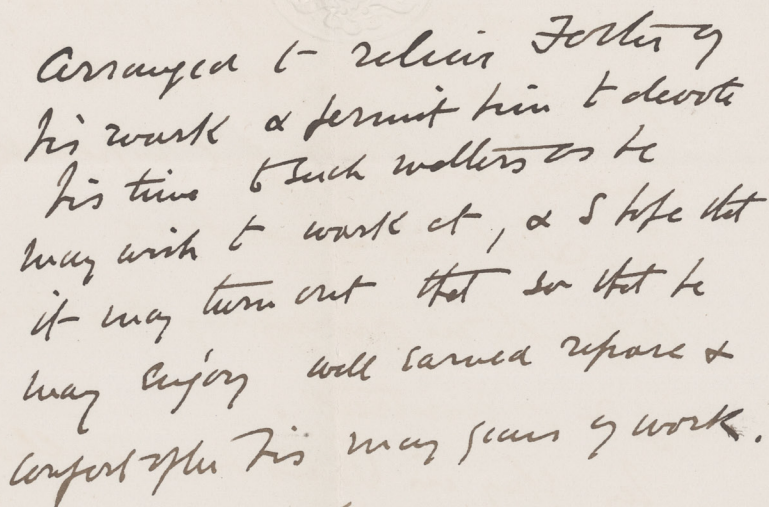 arranged to relieve Foster of
his work & permit him to devote
his time to such matters as he
may wish to work at, & I hope that
it may turn out that so that he
may enjoy well earned repose &
comfort after his many years of work.